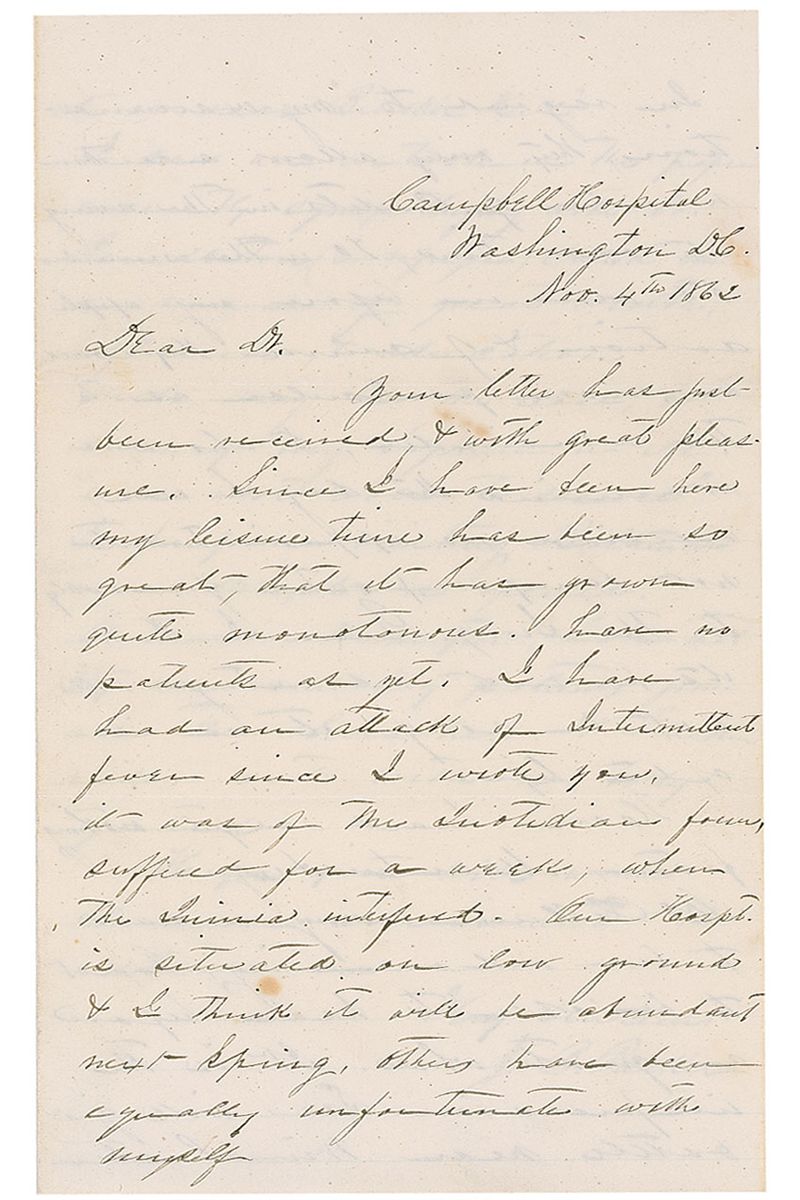 Campbell Hospital
Washington D.C.
Nov. 4th 1862
Dear Dr.
Your letter has just
been received, & with great pleas-
ure. Since I have been here
my leisure time has been so
great, that it has grown
quite monotonous. have no
patients as yet. I have
had an attack of Intermittent
fever since I wrote you,
it was of the Quotidian form,
suffered for a week, when
the Quinia interfered. Our Hospt.
is situated on low ground
& I think it will be abundant
next Spring, others have been
equally unfortunate with
myself